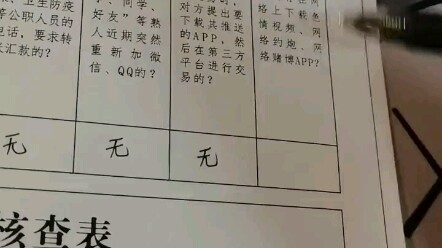 卫生防疫
等公职人员的
电话,要求转
长汇款的?
、同学、
好友”等熟
人近期突然
重新加微
信、QQ的?
对方提出要
下载其推送
的APP,然
后在第三方
平台进行交
易的?
络上下载色
情视频、网
络约炮、网
络赌博APP?
无
无
无
核查表